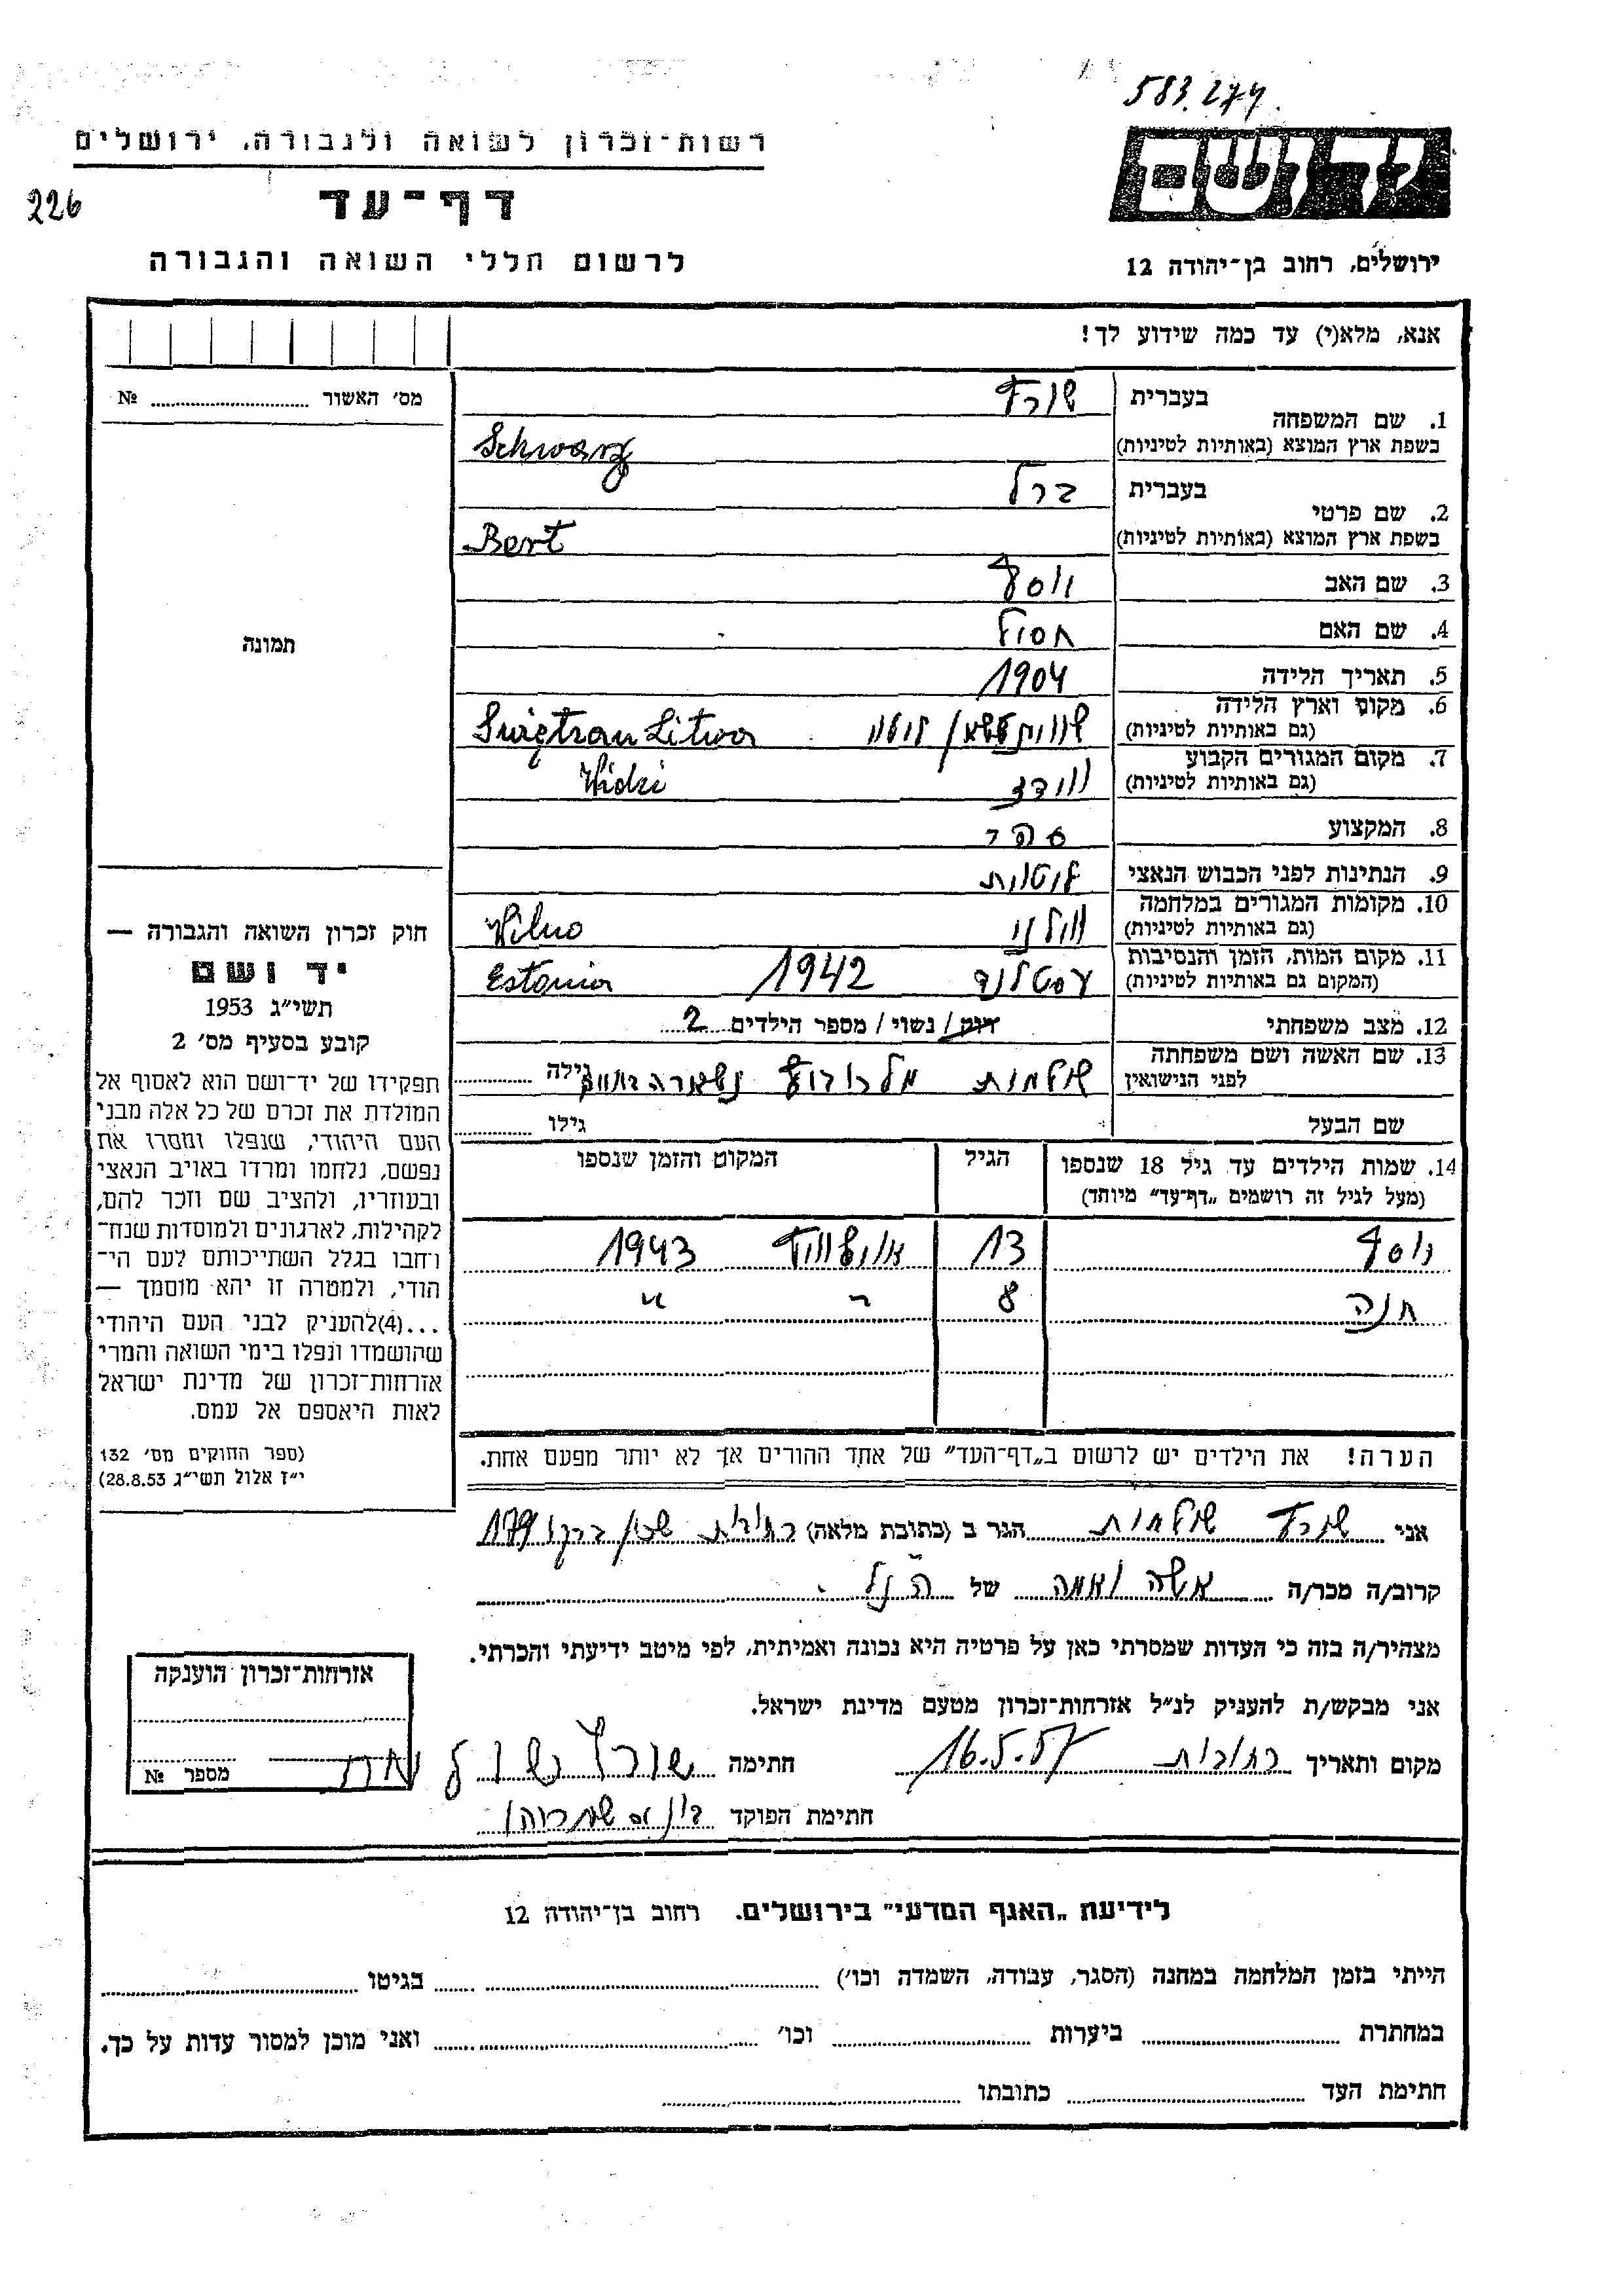 583.274
רשות-זכרון לשואה ולגבורה, ירושלים
יד ושם
226
דף-עד
לרשום חללי השואה והגבורה
ירושלים, רחוב בן-יהודה 12
אנא, מלא(י) עד כמה שידוע לך!
מס׳ האשור № ............
1. שם המשפחה בעברית שורץ
בשפת ארץ המוצא (באותיות לטיניות) Schwarz
2. שם פרטי בעברית ברל
בשפת ארץ המוצא (באותיות לטיניות) Bert
3. שם האב יוסף
4. שם האם
5. תאריך הלידה 1904
6. מקום וארץ הלידה
(גם באותיות לטיניות) Litwa
7. מקום המגורים הקבוע
(גם באותיות לטיניות) Widzi
8. המקצוע
9. הנתינות לפני הכבוש הנאצי ליטאית
10. מקומות המגורים במלחמה
(גם באותיות לטיניות) וילנו Wilno
11. מקום המות, הזמן והנסיבות
(המקום גם באותיות לטיניות) אסטלנד 1942 Estonia
12. מצב משפחתי רווק / נשוי / מספר הילדים 2
13. שם האשה ושם משפחתה
לפני הנישואין שולמית גילה
שם הבעל גילו
14. שמות הילדים עד גיל 18 שנספו הגיל המקום והזמן שנספו
(מעל לגיל זה רושמים „דף-עד” מיוחד)
יוסף 13 אושוויץ 1943
חנה 8 " "
הערה! את הילדים יש לרשום ב„דף-העד” של אחד ההורים אך לא יותר מפעם אחת.
תמונה
חוק זכרון השואה והגבורה —
יד ושם
תשי״ג 1953
קובע בסעיף מס׳ 2
תפקידו של יד-ושם הוא לאסוף אל
המולדת את זכרם של כל אלה מבני
העם היהודי, שנפלו ומסרו את
נפשם, נלחמו ומרדו באויב הנאצי
ובעוזריו, ולהציב שם וזכר להם,
לקהילות, לארגונים ולמוסדות שנח-
רחבו בגלל השתייכותם לעם הי-
הודי, ולמטרה זו יהא מוסמך —
...(4)להעניק לבני העם היהודי
שהושמדו ונפלו בימי השואה והמרי
אזרחות-זכרון של מדינת ישראל
לאות היאספם אל עמם.
(ספר החוקים מס׳ 132
י״ז אלול תשי״ג 28.8.53)
אני שורץ שולמית הגר ב (כתובת מלאה) רחובות
קרוב/ה מכר/ה אשה ואמה של הנ״ל
מצהיר/ה בזה כי העדות שמסרתי כאן על פרטיה היא נכונה ואמיתית, לפי מיטב ידיעתי והכרתי.
אני מבקש/ת להעניק לנ״ל אזרחות-זכרון מטעם מדינת ישראל.
מקום ותאריך רחובות 16.5.57 חתימה שורץ שולמית
חתימת הפוקד
אזרחות-זכרון הוענקה
מספר №
לידיעת „האגף המדעי” בירושלים. רחוב בן-יהודה 12
הייתי בזמן המלחמה במחנה (הסגר, עבודה, השמדה וכו׳) ............ בגיטו ............
במחתרת ............ ביערות ............ וכו׳ ............ ואני מוכן למסור עדות על כך.
חתימת העד ............ כתובתו ............